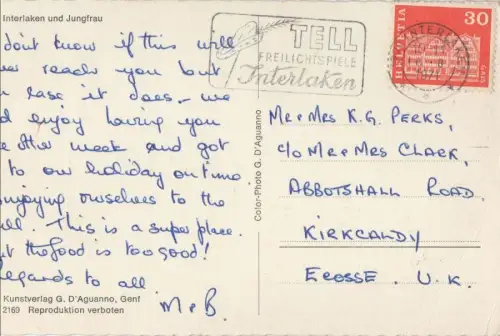 Interlaken und Jungfrau
don't know if this will
ever reach you but
in case it does - we
did enjoy having you
the other week and got
to our holiday on time.
enjoying ourselves to the
full. This is a super place.
but the food is too good!
Regards to all
M & B.
Kunstverlag G. D'Aguanno, Genf
2169 Reproduktion verboten
Color-Photo G. D'Aguanno
TELL
FREILICHTSPIELE
Interlaken
HELVETIA
30
Mr & Mrs K.G. PERKS,
C/O Mr & Mrs CLARK,
ABBOTSHALL ROAD.
KIRKCALDY
ECOSSE. U.K.